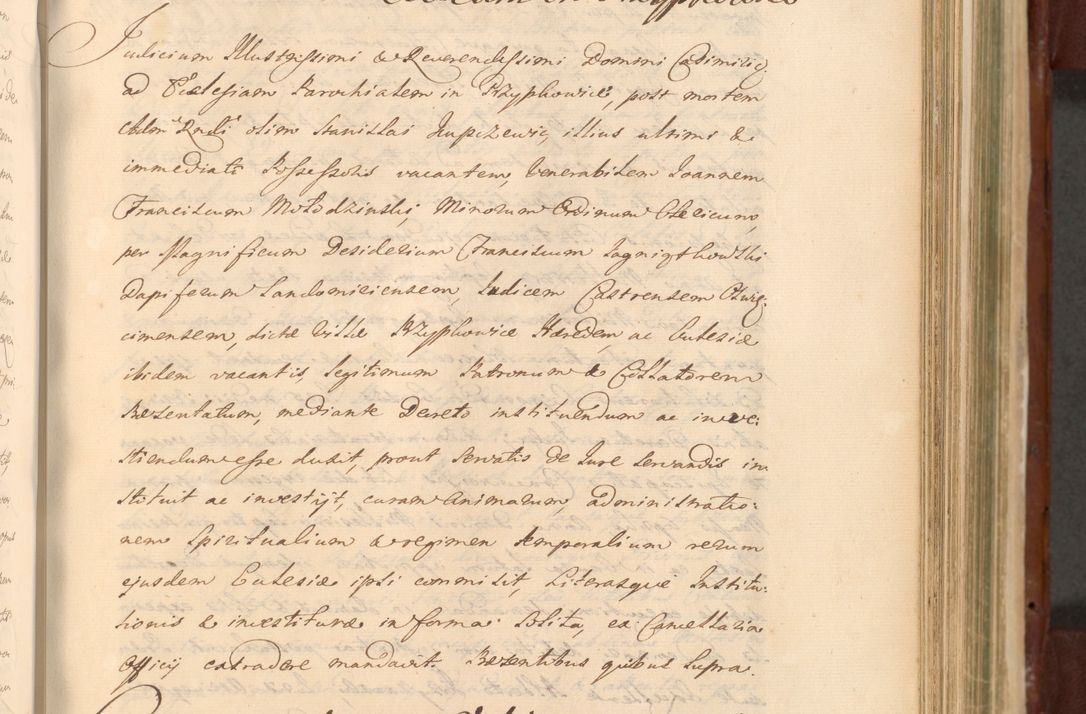 Judicium Illustrissimi & Reverendissimi Domini Casimiri
ad Ecclesiam Parochialem in Przypkowice, post mortem
Adm Rndi olim Stanislai Kupczewic, illius ultimi &
immediati Possessoris vacantem, Venerabilem Joannem
Franciscum Mołodzinski, Minorum Ordinum Clericum,
per Magnificum Desiderium Franciscum
Dapiferum Sandomiriensem, Judicem Castrensem Oswię:
cimensem, dictæ Villæ Przypkowice Hæredem, ac Ecclesiæ
ibidem vacantis, legitimum Patronum & Collatorem
Præsentatum, mediante Decreto instituendum ac inve:
stiendum esse duxit, prout servatis de Jure servandis in
stituit ac investijt, curam animarum, administratio:
nem Spiritualium & regimen temporalium rerum
ejusdem Ecclesiæ ipsi commisit, Literasque Institu:
tionis & investituræ in forma solita, ex Cancellaria
Officij extradere mandavit. Præsentibus quibus supra.